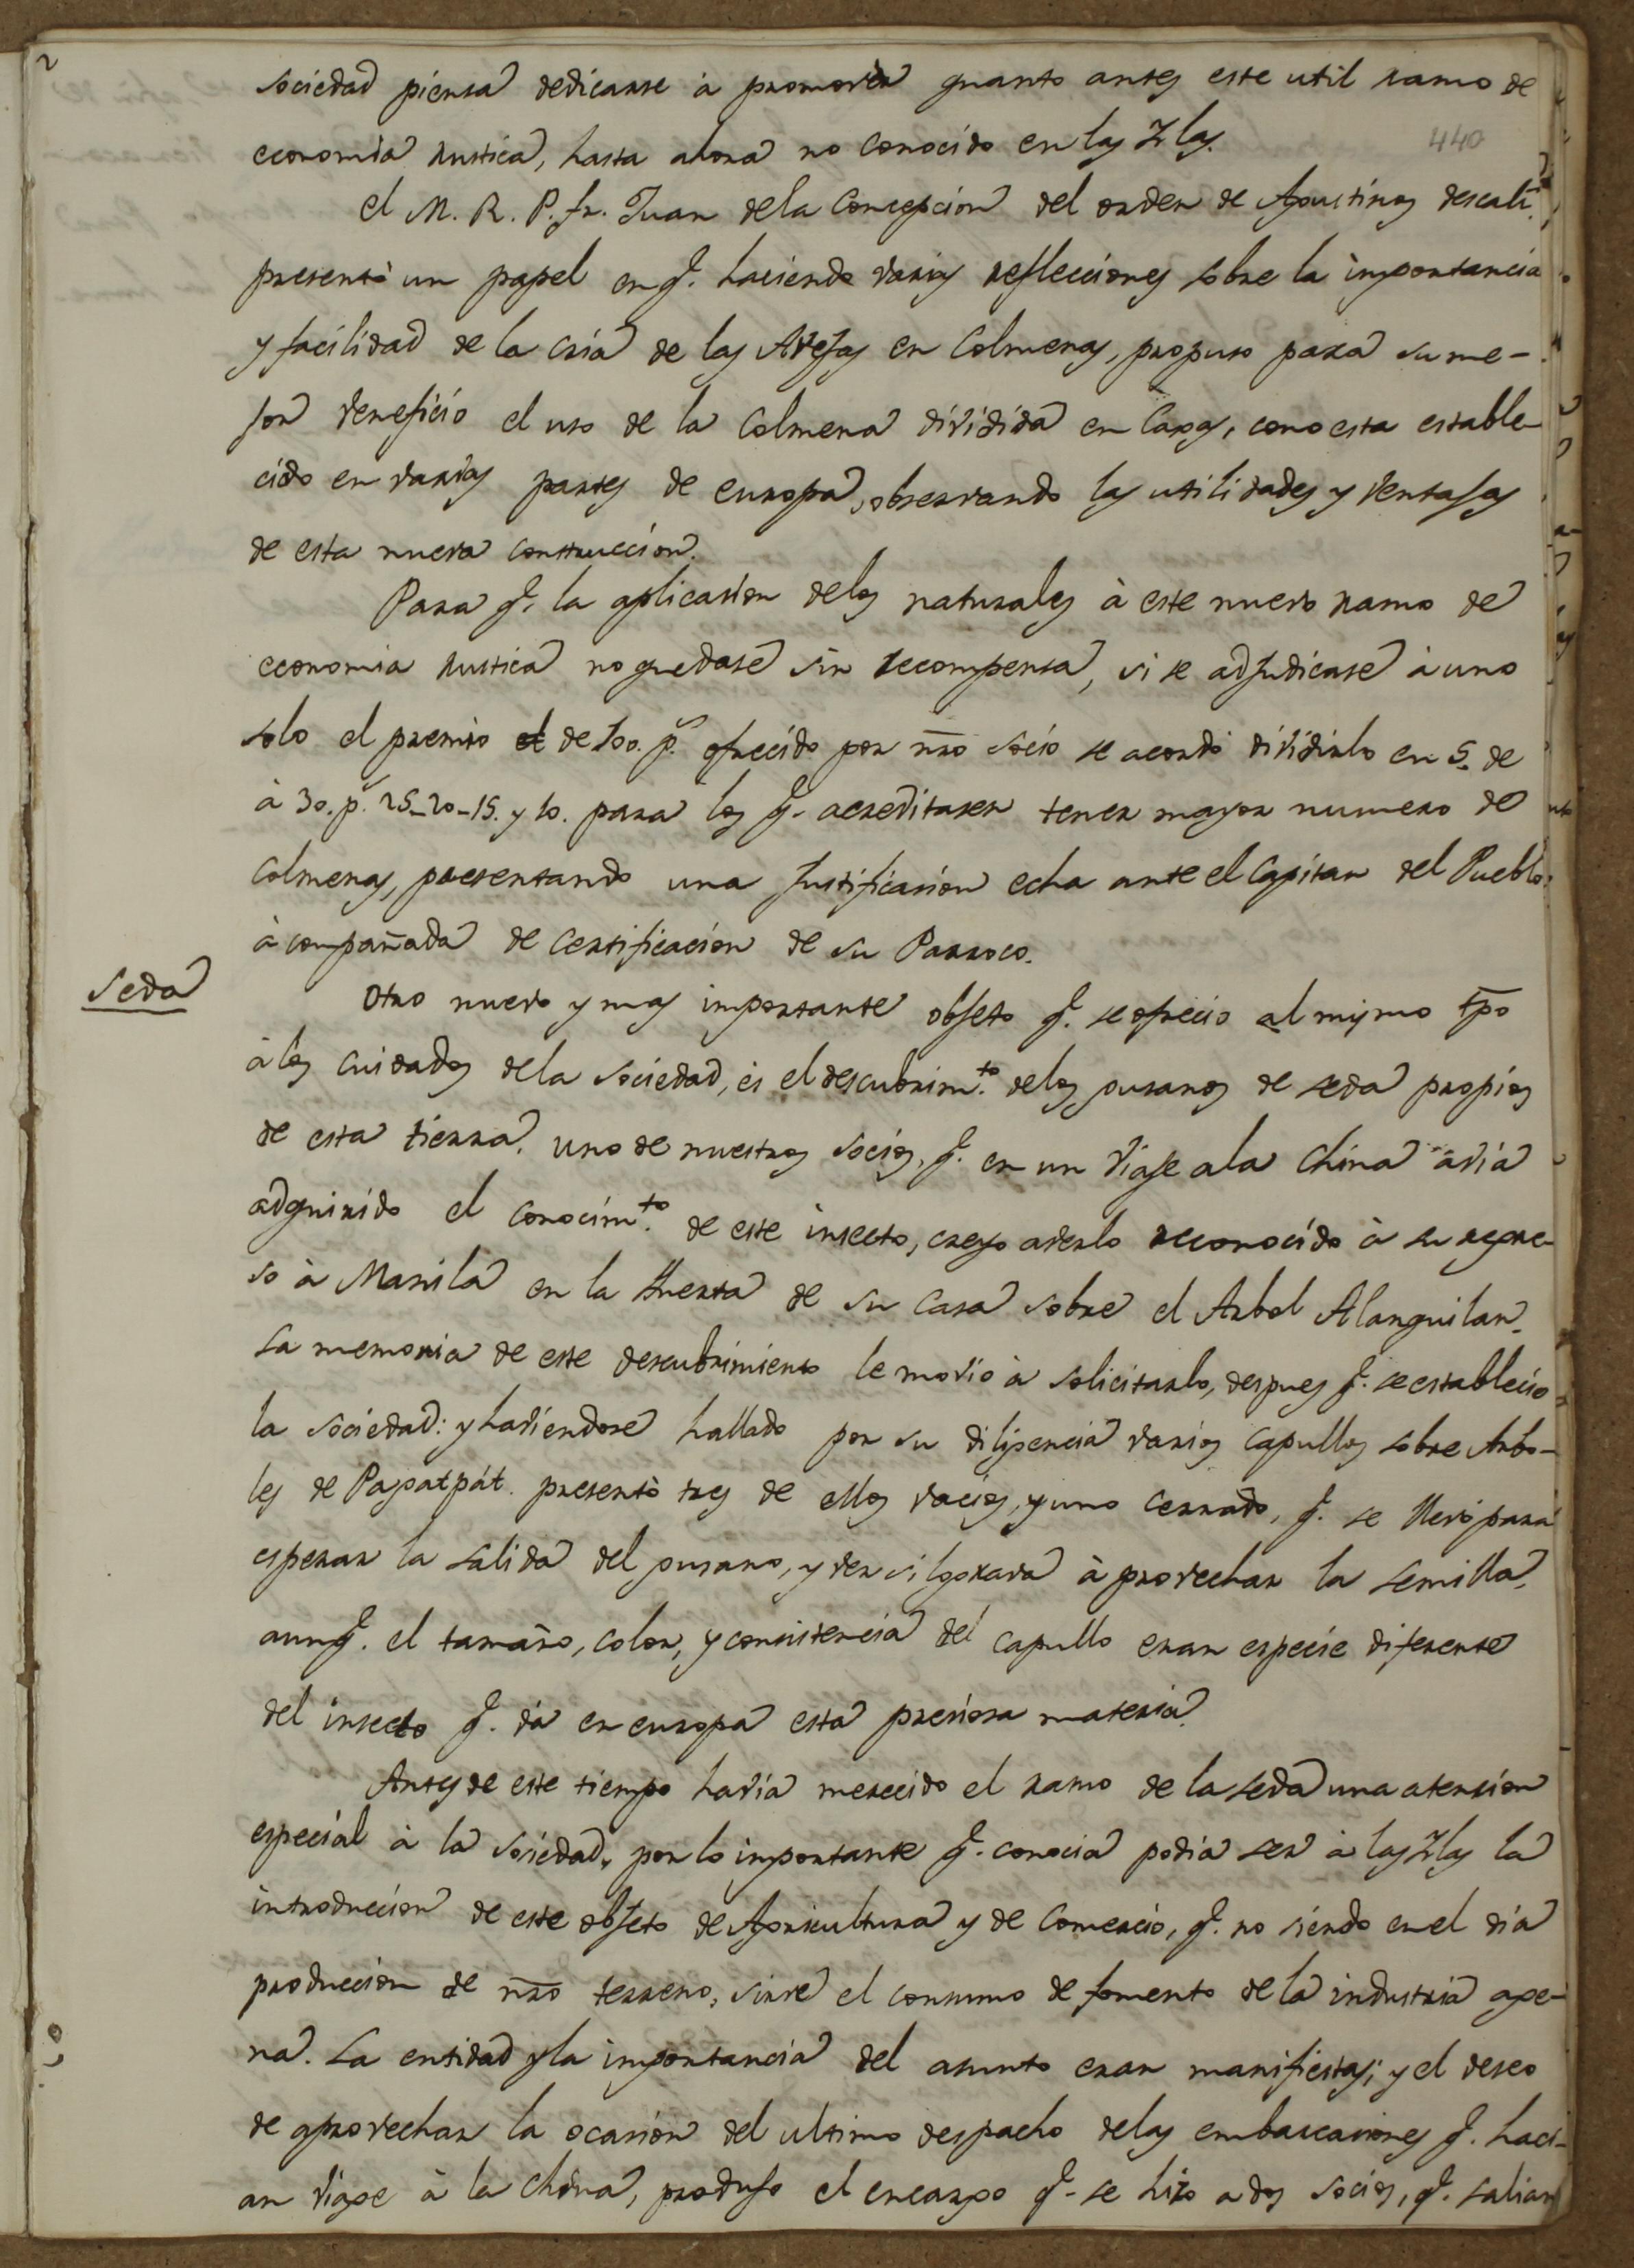 2
sociedad piensa dedicarse à promover quanto antes este util ramo de
economia rustica, hasta ahora no conocido en las Yslas.
440
el M. R. P. fr. Juan dela Concepcion del orden de Agustinos descalz.
presentò un papel en q.e haciendo varias reflecciones sobre la importancia
y facilidad de la cria de las Avejas en Colmenas, propuso para su me-
jor veneficio el uso de la Colmena dividida en Caxas, como esta estable-
cido en varias partes de europa, observando las utilidades y ventajas
de esta nueva construccion.
Para q.e la aplicasion delos naturales à este nuevo ramo de
economia rustica no quedase sin recompensa, si se adjudicase à uno
solo el premio de 100. p.s ofrecido por ñro socio se acordò dividirlo en 5. de
à 30. p.s 25-20-15. y 10. para los q.e acreditasen tener mayor numero de
Colmenas, presentando una Justificasion echa ante el Capitan del Pueblo:
àcompañada de Certificacion de su Parroco.
Seda
Otro nuevo y mas importante objeto q.e se ofrecio al mismo tpo
à los cuidados dela Sociedad, és el descubrim.to delos gusanos de seda propios
de esta tierra. uno de nuestros socios, q.e en un viaje ala China avia
adquirido el conocim.to de este insecto, creyo averlo reconocido à su regre-
so à Manila en la Huerta de su Casa sobre el Arbol Alanguilan.
La memoria de este descubrimiento le moviò à solicitarlo, despues q.e se establecio
la sociedad: y haviendose hallado por su diligencia varios Capullos sobre Arbo-
les de Pagatpát. presentò tres de ellos vacios, y uno Cerrado, q.e se llevò para
esperar la salida del gusano, y ver si lograva àprovechar la semilla,
aunq.e el tamaño, color, y consistencia del capullo eran especie diferente
del insecto q.e dà en europa esta preciosa materia.
Antes de este tiempo havia merecido el ramo de la seda una atension
especial à la Sosiedad, por lo importante q.e conocia podia ser à las Yslas la
introduccion de este objeto de Agricultura y de Comercio, q.e no siendo en el dia
produccion de ñro terreno, sirve el consumo de fomento de la industria age-
na. La entidad y la importancia del asunto eran manifiestas; y el deseo
de aprovechar la ocasion del ultimo despacho delas embarcaciones q.e haci-
an viage à la China, produjo el encargo q.e se hizo a dos socios, q.e salian